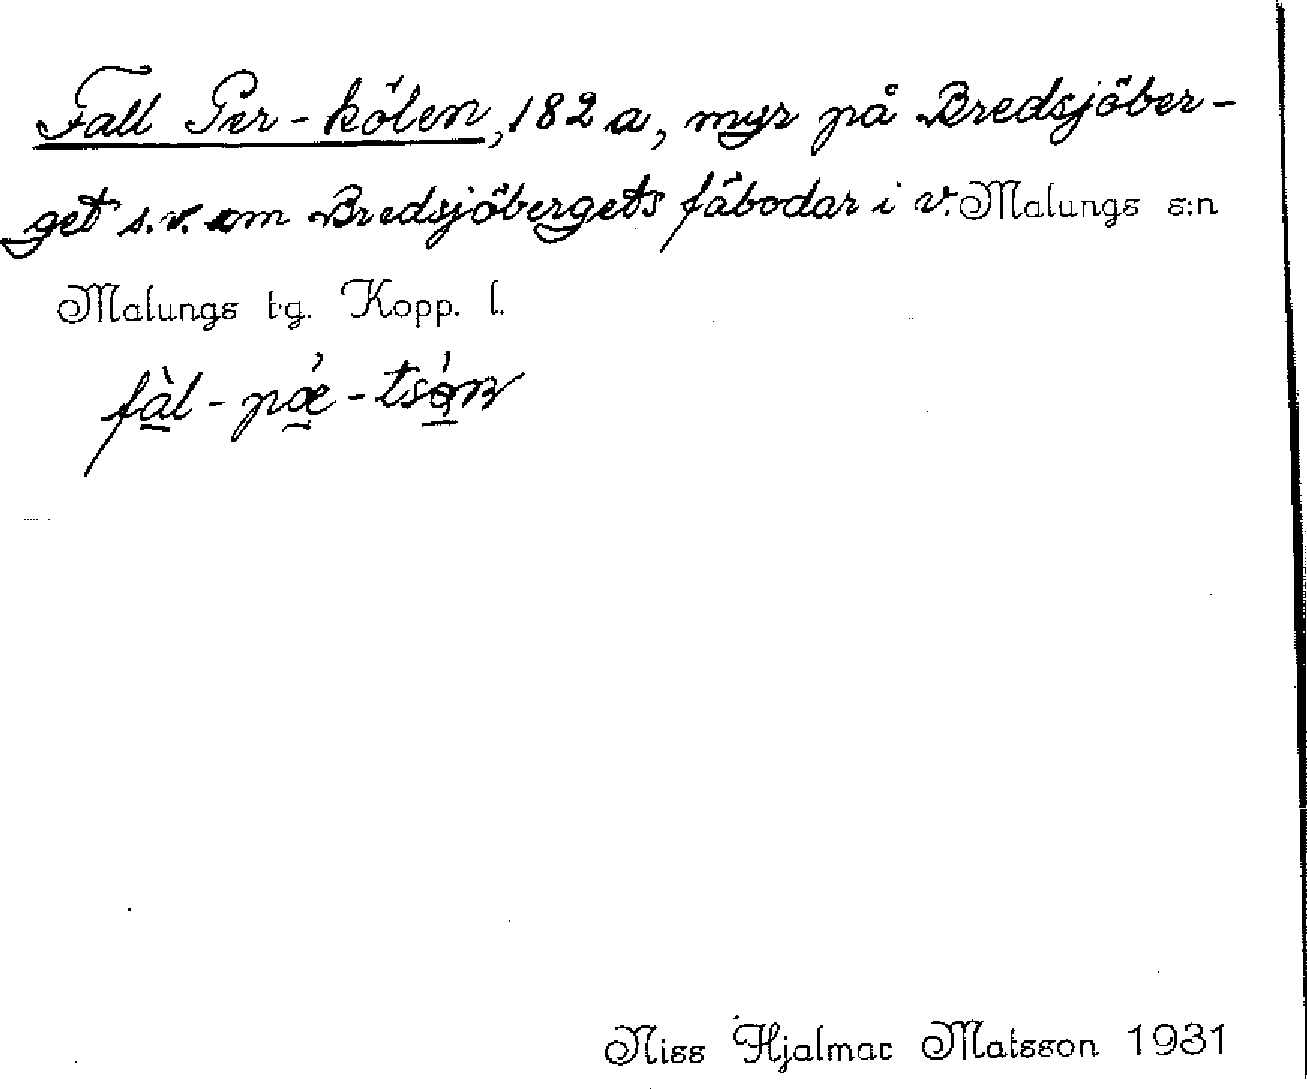 Fall Per-kölen, 182 a, myr på Bredsjöber-
get s.v. om Bredsjöbergets fäbodar i v. Malungs s:n
Malungs t:g. Kopp. l.
fàl-pǽ-tsǿn
Niss Hjalmar Matsson 1931